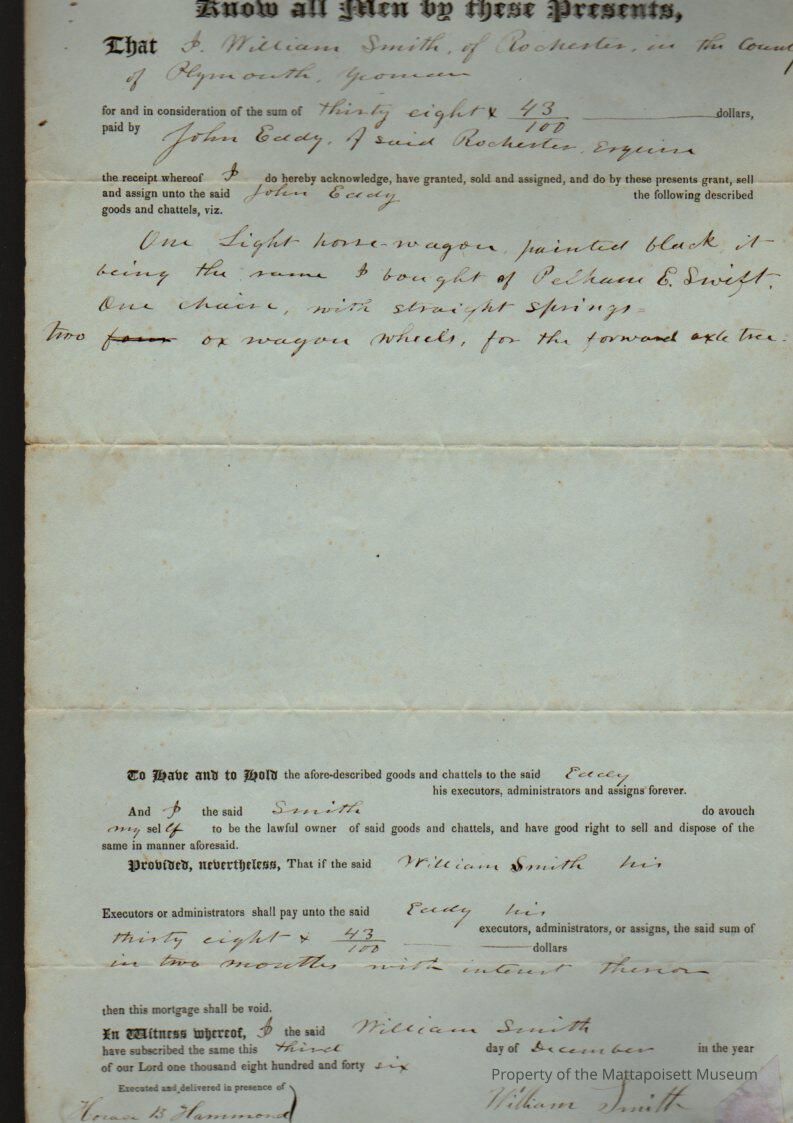 Know all Men by these Presents,
That I, William Smith, of Rochester, in the County
of Plymouth, yeoman
for and in consideration of the sum of thirty eight & 43/100 dollars,
paid by John Eddy, of said Rochester, Esquire
the receipt whereof I do hereby acknowledge, have granted, sold and assigned, and do by these presents grant, sell
and assign unto the said John Eddy the following described
goods and chattels, viz.
One Light horse-wagon, painted black, it
being the same I bought of Pelham E. Swift.
One chaise, with straight springs
two four ox wagon wheels, for the forward axle tree.
To Have and to Hold the afore-described goods and chattels to the said Eddy
his executors, administrators and assigns forever.
And I the said Smith do avouch
my self to be the lawful owner of said goods and chattels, and have good right to sell and dispose of the
same in manner aforesaid.
Provided, nevertheless, That if the said William Smith his
Executors or administrators shall pay unto the said Eddy his
executors, administrators, or assigns, the said sum of
thirty eight & 43/100 dollars
in two months with interest thereon
then this mortgage shall be void.
In Witness whereof, I the said William Smith
have subscribed the same this third day of December in the year
of our Lord one thousand eight hundred and forty six
Executed and delivered in presence of
Horace B Hammond
William Smith
Property of the Mattapoisett Museum